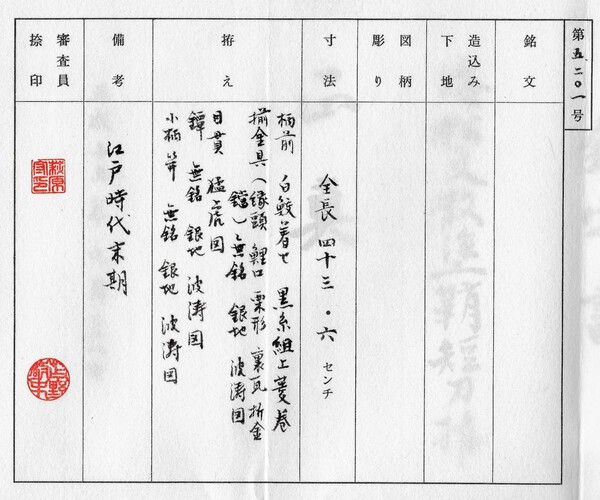 第五二〇一号
銘文
造込み
下地
図柄
彫り
寸法
全長 四十三・六 センチ
拵え
柄前 白鮫着せ 黒糸組上菱巻
揃金具(縁頭 鯉口 栗形 裏瓦 折金
鐺)無銘 銀地 波涛図
目貫 猛虎図
鐔 無銘 銀地 波涛図
小柄 笄 無銘 銀地 波涛図
備考
江戸時代末期
審査員
捺印